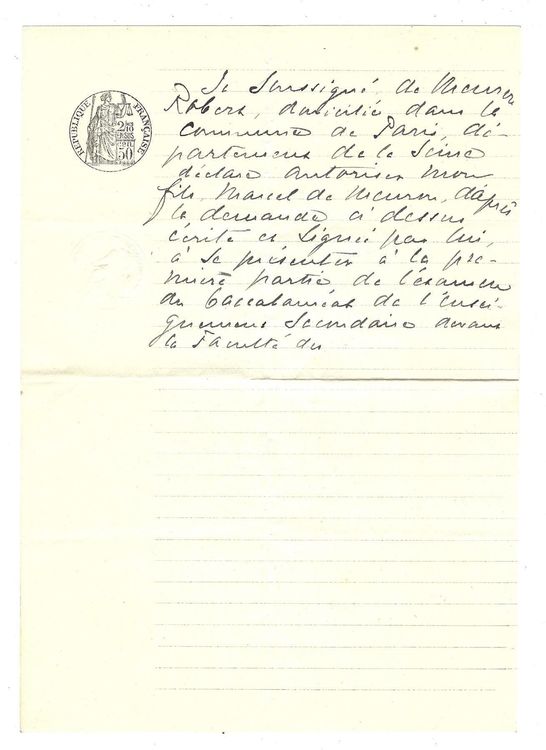 RÉPUBLIQUE FRANÇAISE
50
Je Soussigné, de Meuron
Robert, domicilié dans la
Commune de Paris, dé-
partement de la Seine
déclare autoriser mon
fils, Marcel de Meuron, d'après
la demande ci dessus
écrite et signée par lui,
à se présenter à la pre-
mière partie de l'examen
du baccalauréat de l'ensei-
gnement Secondaire devant
la Faculté des